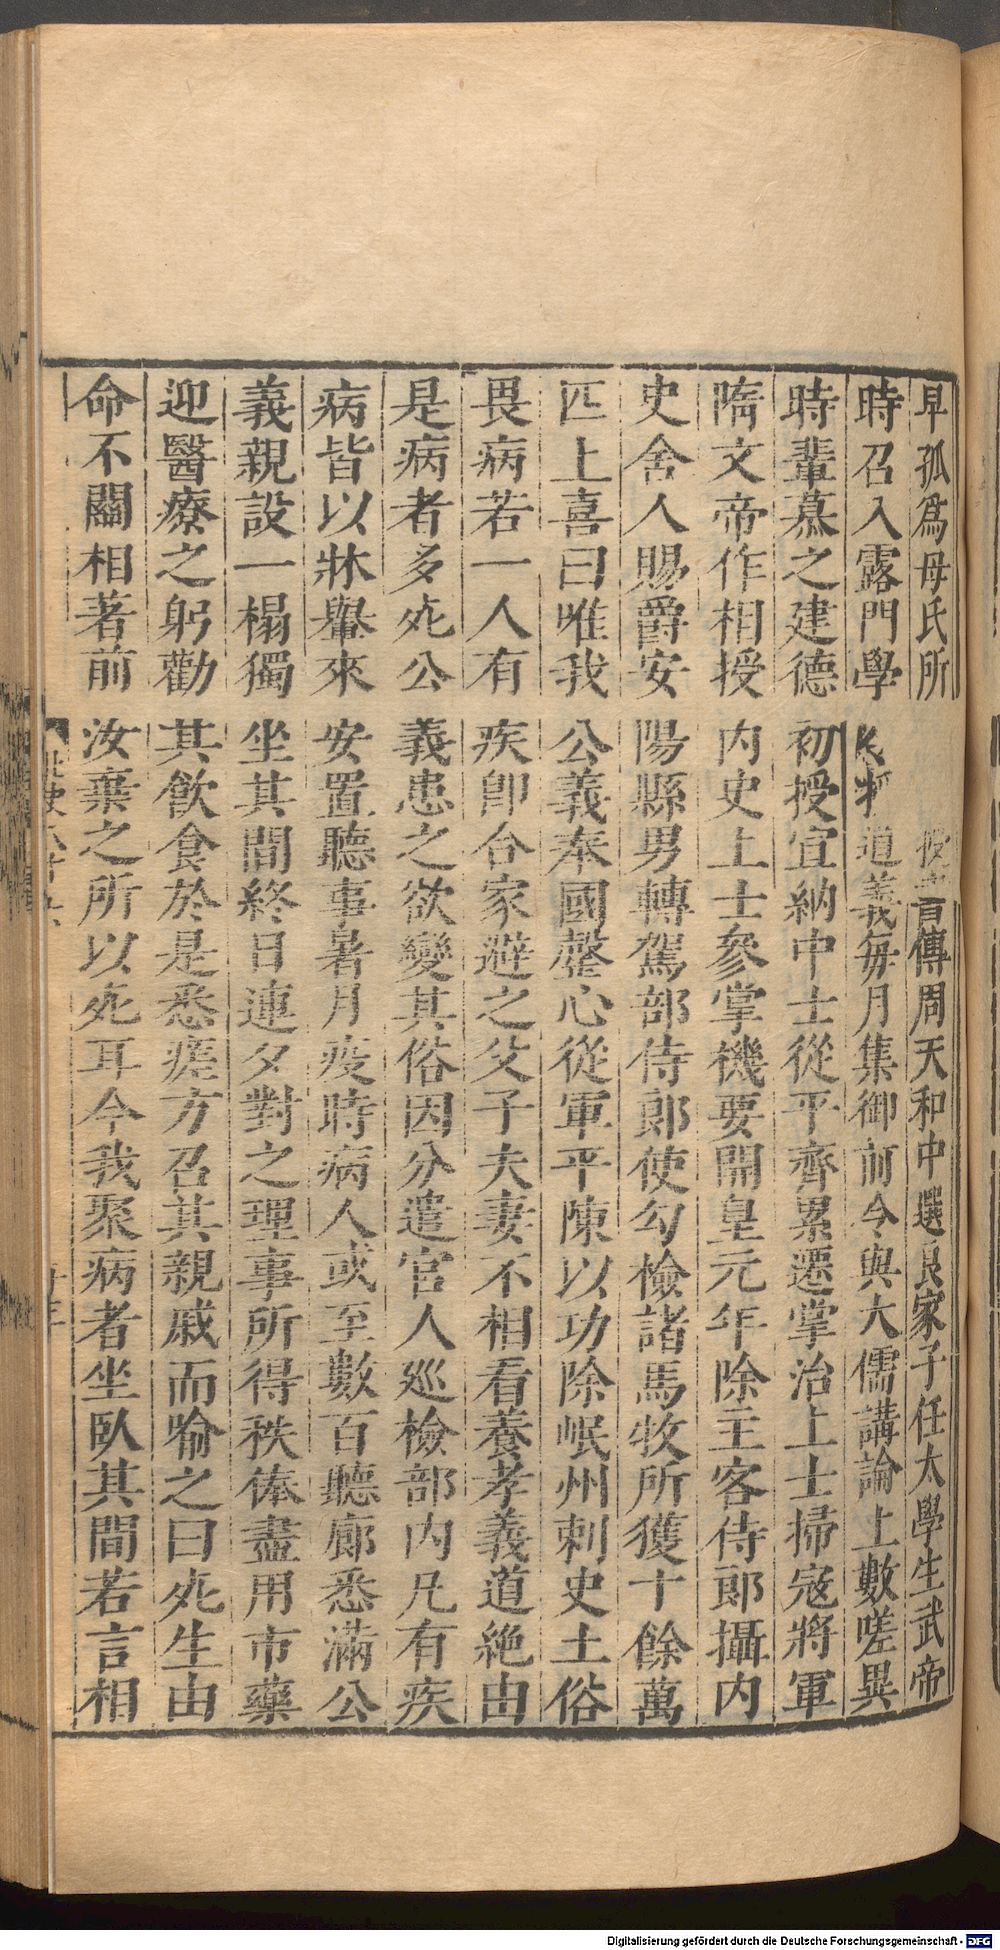 早孤爲母氏所授書傳周天和中選良家子任太學生武帝
時召入露門學 道義每月集御前令與大儒講論上數嗟異
時輩慕之建德初授宣納中士從平齊累遷掌治上士掃寇將軍
隋文帝作相授內史上士參掌機要開皇元年除主客侍郎攝內
史舍人賜爵安陽縣男轉駕部侍郎使勾檢諸馬牧所獲十餘萬
匹上喜曰唯我公義奉國罄心從軍平陳以功除岷州刺史土俗
畏病若一人有疾卽合家避之父子夫妻不相看養孝義道絶由
是病者多死公義患之欲變其俗因分遣官人廵檢部內凡有疾
病皆以牀轝來安置聽事暑月疫時病人或至數百聽廊悉滿公
義親設一榻獨坐其間終日連夕對之理事所得秩俸盡用市藥
迎醫療之躬勸其飮食於是悉瘥方召其親戚而喻之曰死生由
命不關相著前汝棄之所以死耳今我聚病者坐臥其間若言相
Digitalisierung gefördert durch die Deutsche Forschungsgemeinschaft - DFG